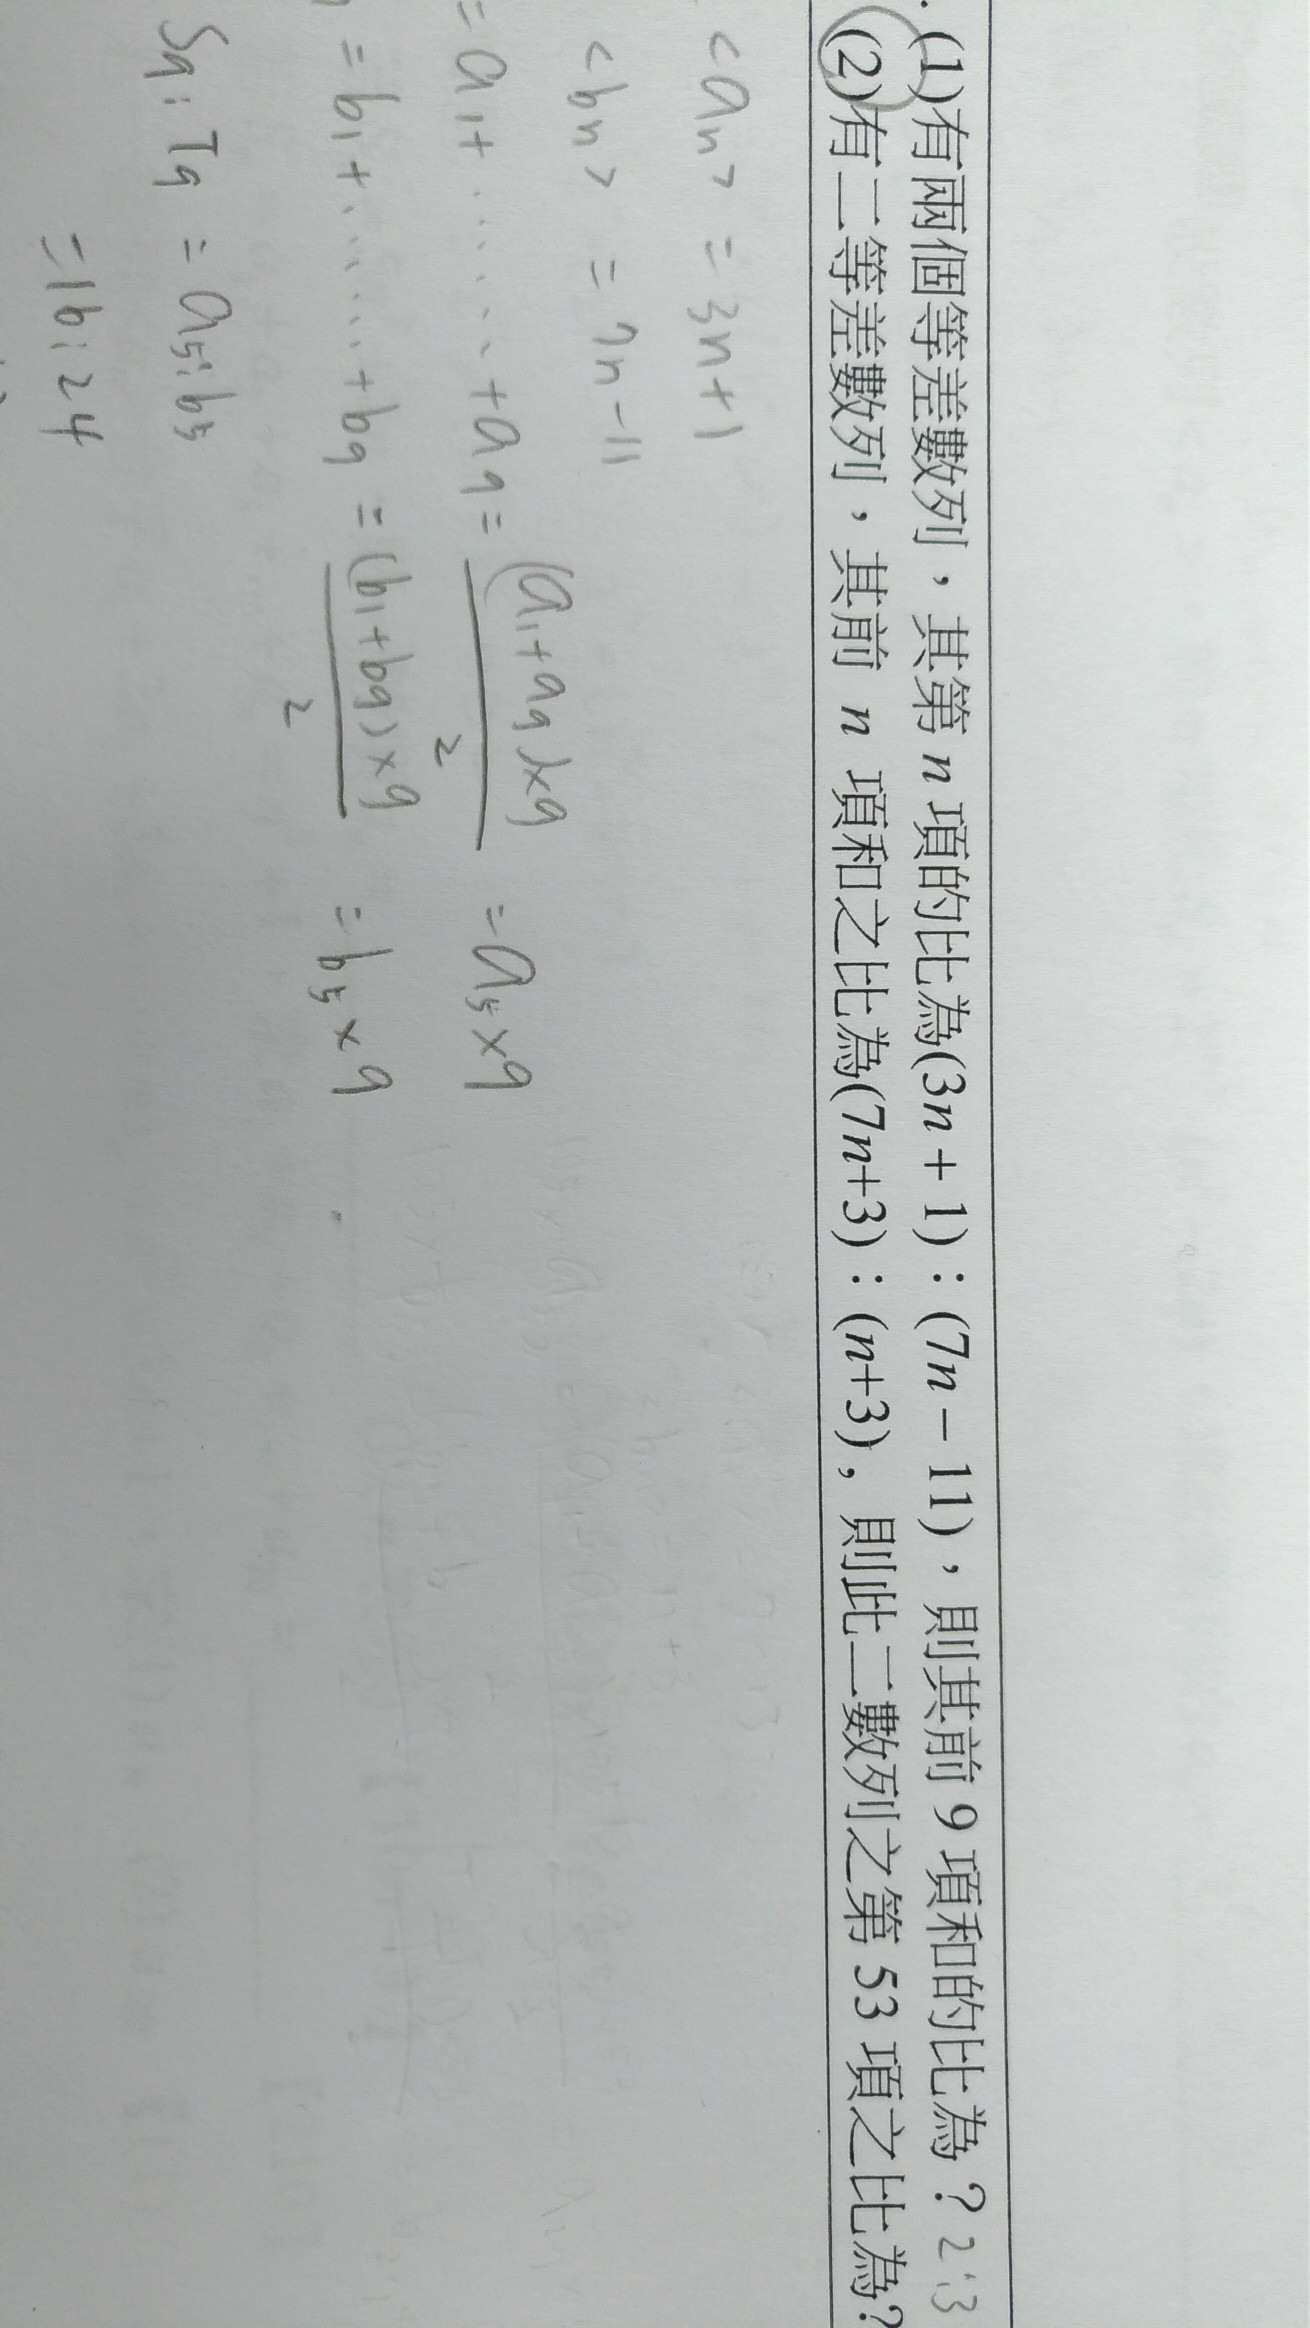 (1)有兩個等差數列，其第 n 項的比為(3n+1)：(7n－11)，則其前 9 項和的比為？2:3
(2)有二等差數列，其前 n 項和之比為(7n+3)：(n+3)，則此二數列之第 53 項之比為?
<an> = 3n+1
<bn> = 7n-11
= a1+ ...... +a9 = (a1+a9)×9 / 2 = a5×9
= b1+ ...... +b9 = (b1+b9)×9 / 2 = b5×9
S9 : T9 = a5 : b5
= 16 : 24